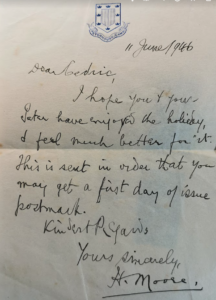 11 June 1946
Dear Cedric,
I hope you & your
Pater have enjoyed the holiday,
I feel much better for it.
This is sent in order that you
may get a first day of issue
postmark.
Kindest Regards
Yours sincerely,
H. Moore,